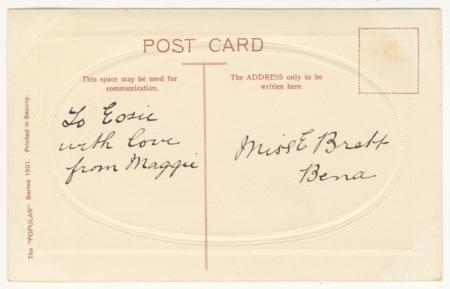 POST CARD
This space may be used for
communication.
The ADDRESS only to be
written here.
To Eosie
with love
from Maggie
Miss E Brett
Bena
The "POPULAR" Series 1601. Printed in Saxony.